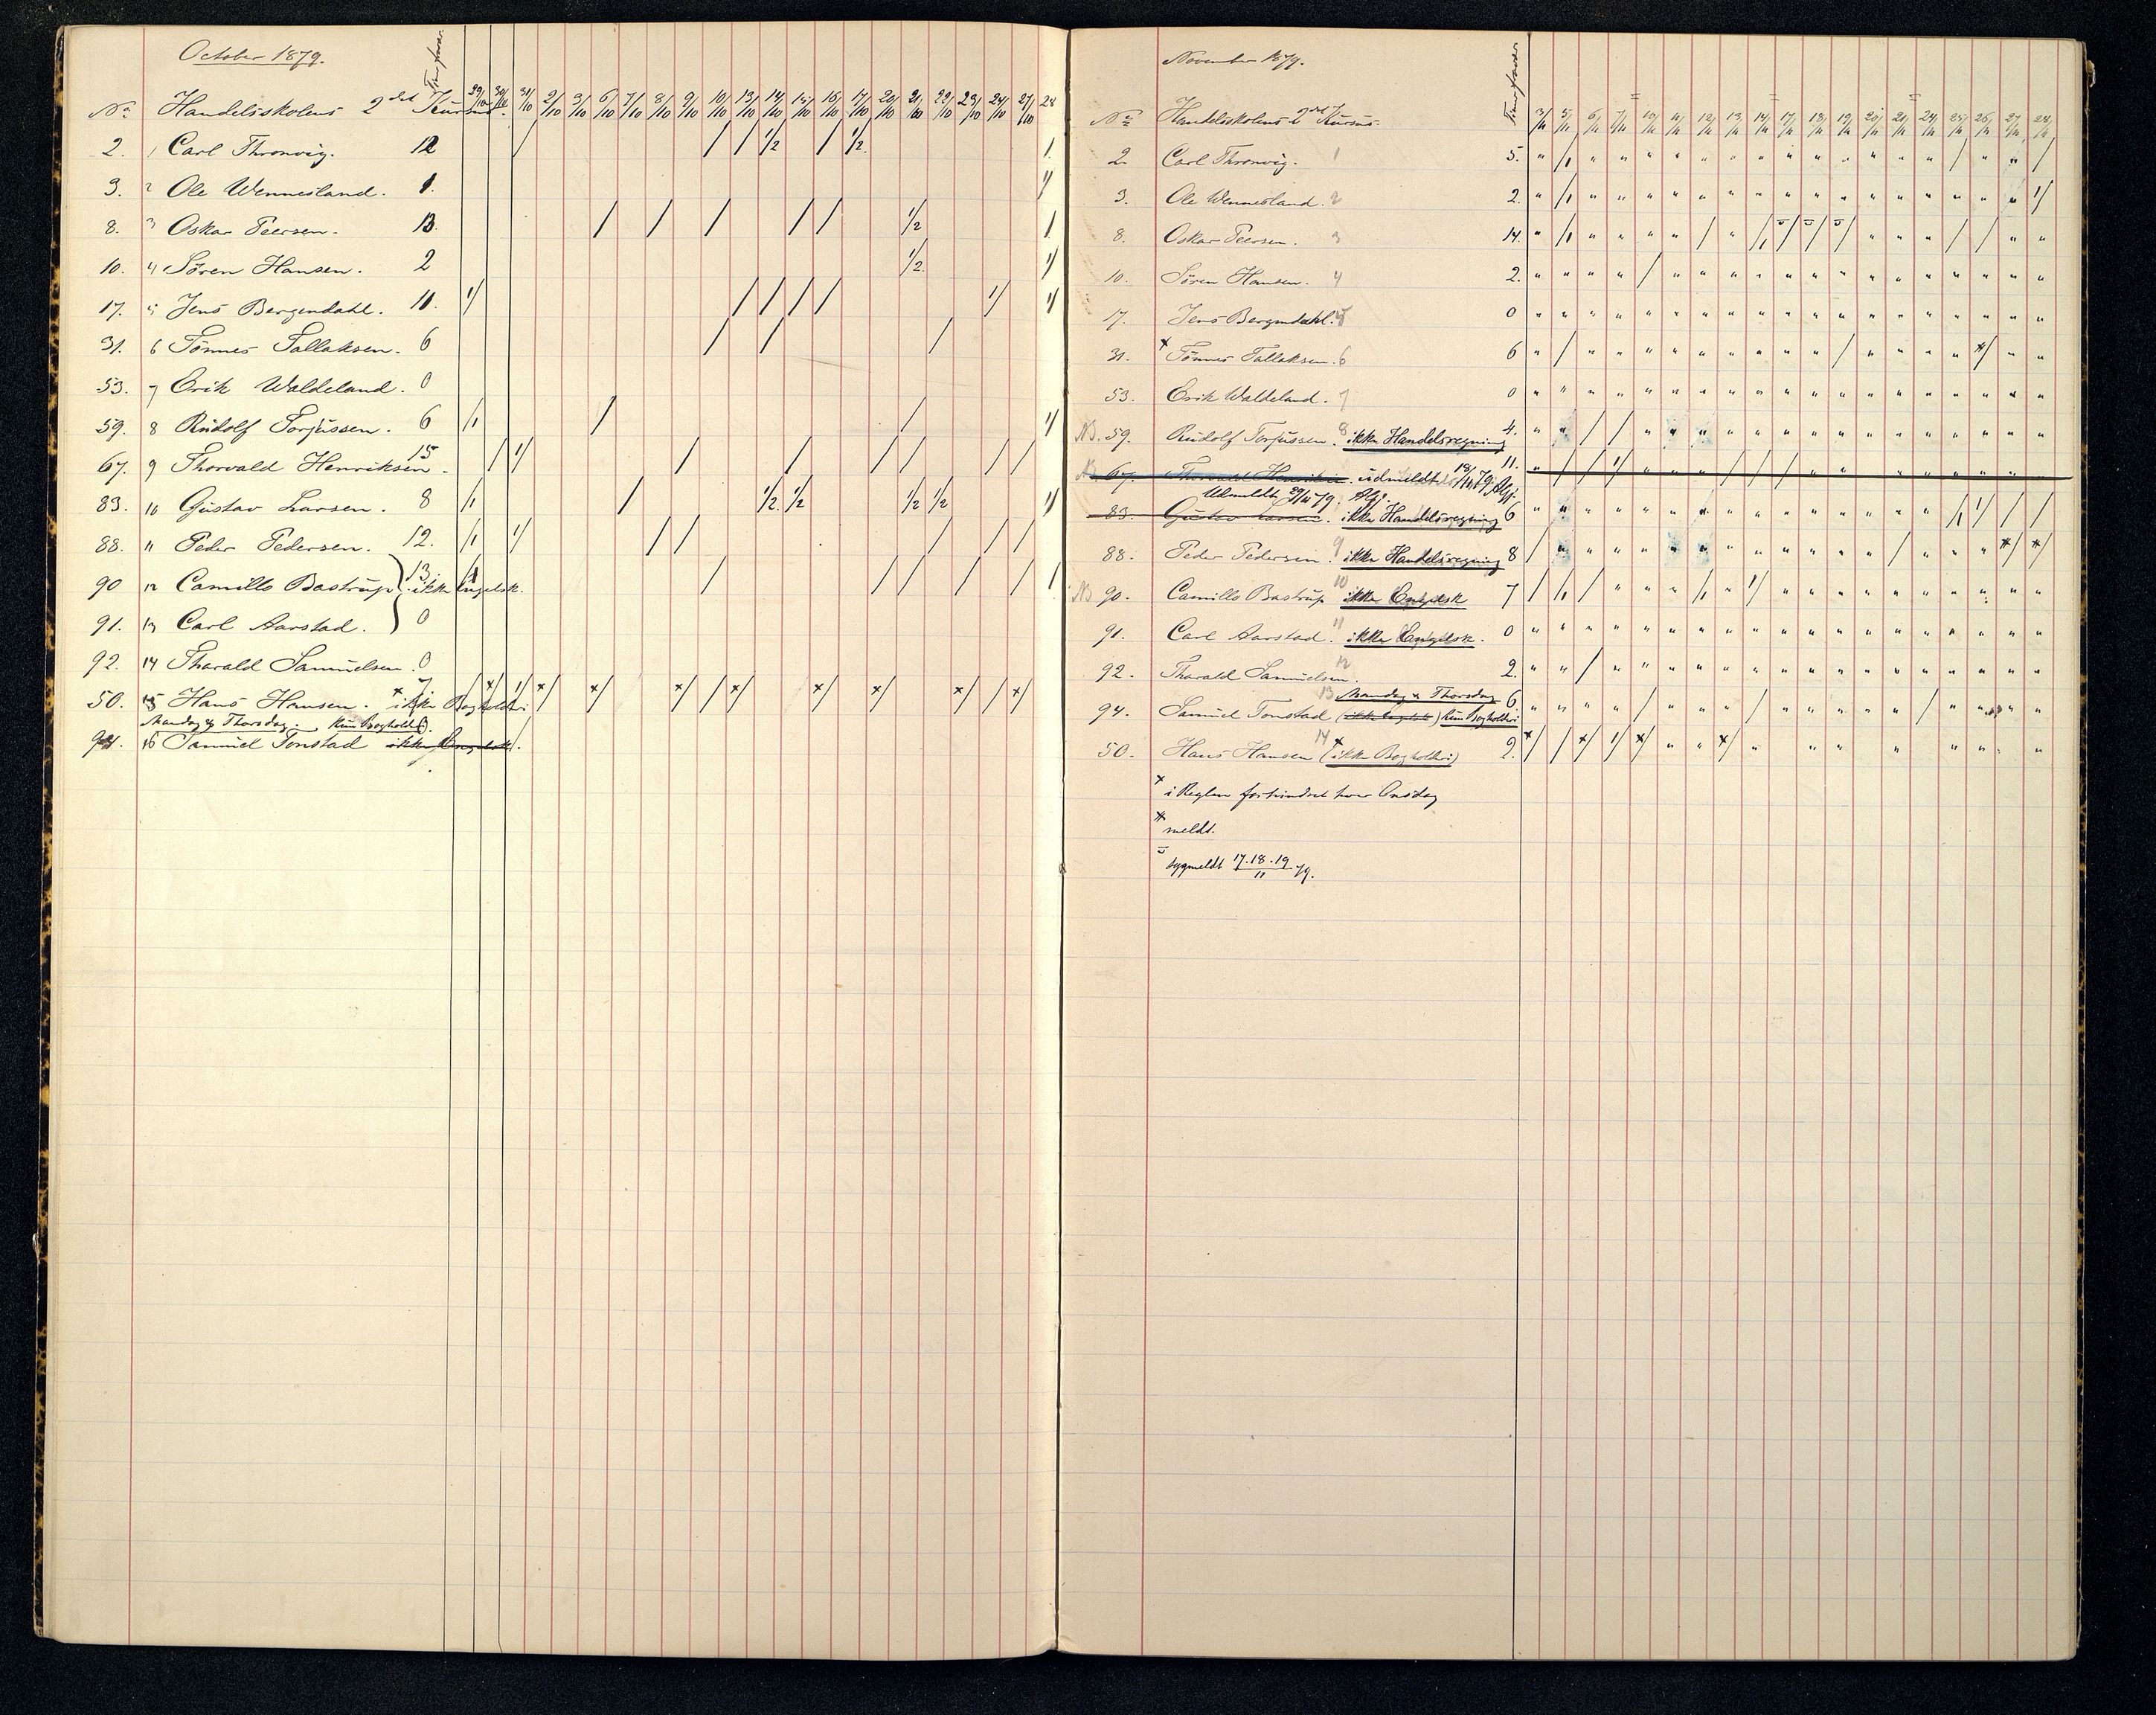 October 1879.
No Handelsskolens 2det Kursus. 29/10 30/10 31/10 2/10 3/10 6/10 7/10 8/10 9/10 10/10 13/10 14/10 15/10 16/10 17/10 20/10 21/10 22/10 23/10 24/10 27/10 28
2. 1 Carl Thronvig. 12 / / / 1/2 / 1/2 1
3. 2 Ole Wennesland. 1. 1/
8. 3 Oskar Peersen. 13. / / / / / 1/2 1
10. 4 Sören Hansen. 2 1/2 1/
17. 5 Jens Bergendahl. 10. 1/ / / / / 1/ 1/
31. 6 Tönnes Tallaksen. 6 / / /
53. 7 Erik Waldeland. 0
59. 8 Rudolf Torjussen. 6 /1 / / 1/
67. 9 Thorvald Henriksen. 15 / 1/ / / / / / /
83. 10 Gustav Larsen. 8 /1 / 1/2 1/2 1/2 1/2 1/
88. 11 Peder Pedersen. 12. /1 1/ / / / / /
90 12 Camillo Bastrup 13. ikke Engelsk. / / / / / /
91. 13 Carl Aarstad. 0
92. 14 Tharald Samuelsen. 0
50. 15 Hans Hansen. x ikke Bogholderi 7 / x/ 1/ x/ x/ x/ / x/ x/ x/ x/ / x/
Mandag & Thorsdag. Kun Bogholderi
94. 16 Samuel Tonstad ikke Engelsk /.
November 1879.
No Handelsskolens 2det Kursus. 3/11 5/11 6/11 7/11 10/11 11/11 12/11 13/11 14/11 17/11 18/11 19/11 20/11 21/11 24/11 25/11 26/11 27/11 28/11
2. Carl Thronvig. 1 5. " /1 " " " " " " " " " " " " " / " " /
3. Ole Wennesland. 2 2. " /1 " " " " " " " " " " " " " " " " 1/
8. Oskar Peersen. 3 14. " /1 " " " " / " / / / / " " " / / " "
10. Sören Hansen. 4 2. " " " " / " " " " " " " " " " " " " "
17. Jens Bergendahl. 5 0 " " " " " " " " " " " " " " " " " " "
31. x Tönnes Tallaksen. 6 6 " / " " " " " " " " " / " " " " x/ " "
53. Erik Waldeland. 7 0 " " " " " " " " " " " " " " " " " " "
NB. 59. Rudolf Torjussen. 8 ikke Handelsregning 4. " " / / " " " " " " " " " " " " " " "
NB 67. Thorvald Henriksen. udmeldt 18/11 79. 11. " / / 1/ / " " / / / " " " " " " " " "
Udmeldt 29/11 79.
83. Gustav Larsen. ikke Handelsregning 6 " " " " " " " " " " " " " " " /1 1/ / /
88. Peder Pedersen. 9 ikke Handelsregning 8 / " " " " " " " " " " " " / " " " x/ x/
NB 90. Camillo Bastrup 10 ikke Engelsk 7 / /1 / " " " /1 " 1/ " " " " " " " " " "
91. Carl Aarstad. 11 ikke Engelsk. 0 " " " " " " " " " " " " " " " " " " "
92. Tharald Samuelsen. 12 2. " " / " " " " " " " " " " " " " " " "
13 Mandag & Thorsdag
94. Samuel Tonstad (ikke Engelsk) Kun Bogholderi 6. " " " " / " " " / " " " " " / " " " "
50. Hans Hansen 14 (x ikke Bogholderi) 2. x/ / x/ 1/ x/ " " x/ " " " " " " " "
x i Reglen forhindret hver Onsdag
x meldt.
sygmeldt 17.18.19/11 79.